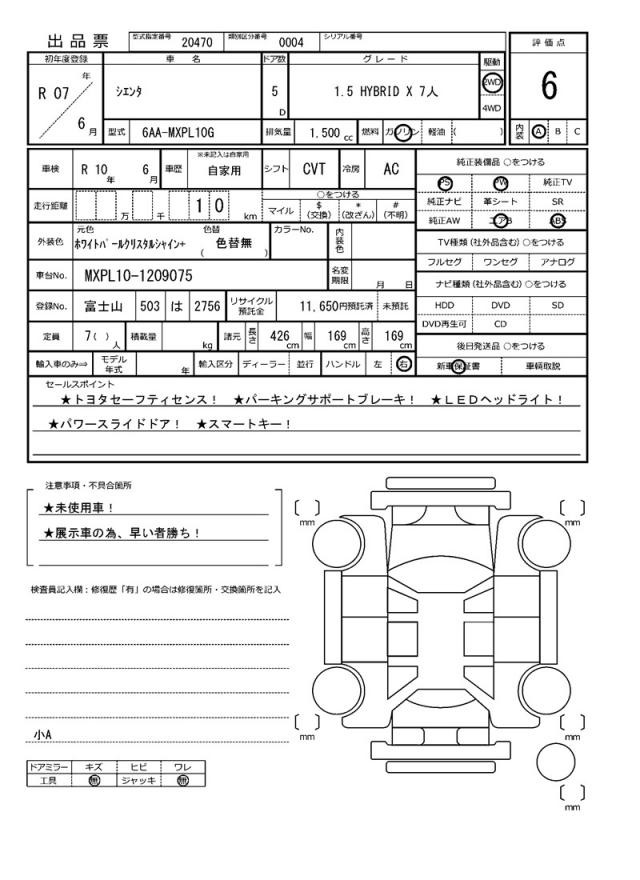 出品票 型式指定番号 20470 類別区分番号 0004 シリアル番号
初年度登録 車名 ドア数 グレード 駆動 評価点
R 07 年 6 月 シエンタ 5 D 1.5 HYBRID X 7人 2WD 4WD 6
型式 6AA-MXPL10G 排気量 1,500 cc 燃料 ガソリン 軽油 ( ) 内装 A B C
車検 R 10 年 6 月 車歴 ※未記入は自家用 自家用 シフト CVT 冷房 AC 純正装備品 ○をつける
PS PW 純正TV
走行距離 万 千 1 0 km ○をつける 純正ナビ 革シート SR
マイル $ (交換) * (改ざん) # (不明) 純正AW エアB ABS
外装色 元色 ホワイトパールクリスタルシャイン+ 色替 ( 色替無 ) カラーNo. 内装色 TV種類 (社外品含む) ○をつける
フルセグ ワンセグ アナログ
車台No. MXPL10-1209075 名変期限 月 日 ナビ種類 (社外品含む) ○をつける
登録No. 富士山 503 は 2756 リサイクル預託金 11,650円預託済 未預託 HDD DVD SD
DVD再生可 CD
定員 7( ) 人 積載量 kg 諸元 長さ 426 cm 幅 169 cm 高さ 169 cm 後日発送品 ○をつける
輸入車のみ⇒ モデル年式 年 輸入区分 ディーラー 並行 ハンドル 左 右 新車保証書 車輌取説
セールスポイント
★トヨタセーフティセンス! ★パーキングサポートブレーキ! ★LEDヘッドライト!
★パワースライドドア! ★スマートキー!
注意事項・不具合箇所
★未使用車!
★展示車の為、早い者勝ち!
検査員記入欄:修復歴「有」の場合は修復箇所・交換箇所を記入
小A
ドアミラー キズ ヒビ ワレ
工具 無 ジャッキ 無
[ ] mm
[ ] mm
[ ] mm
[ ] mm
[ ] mm